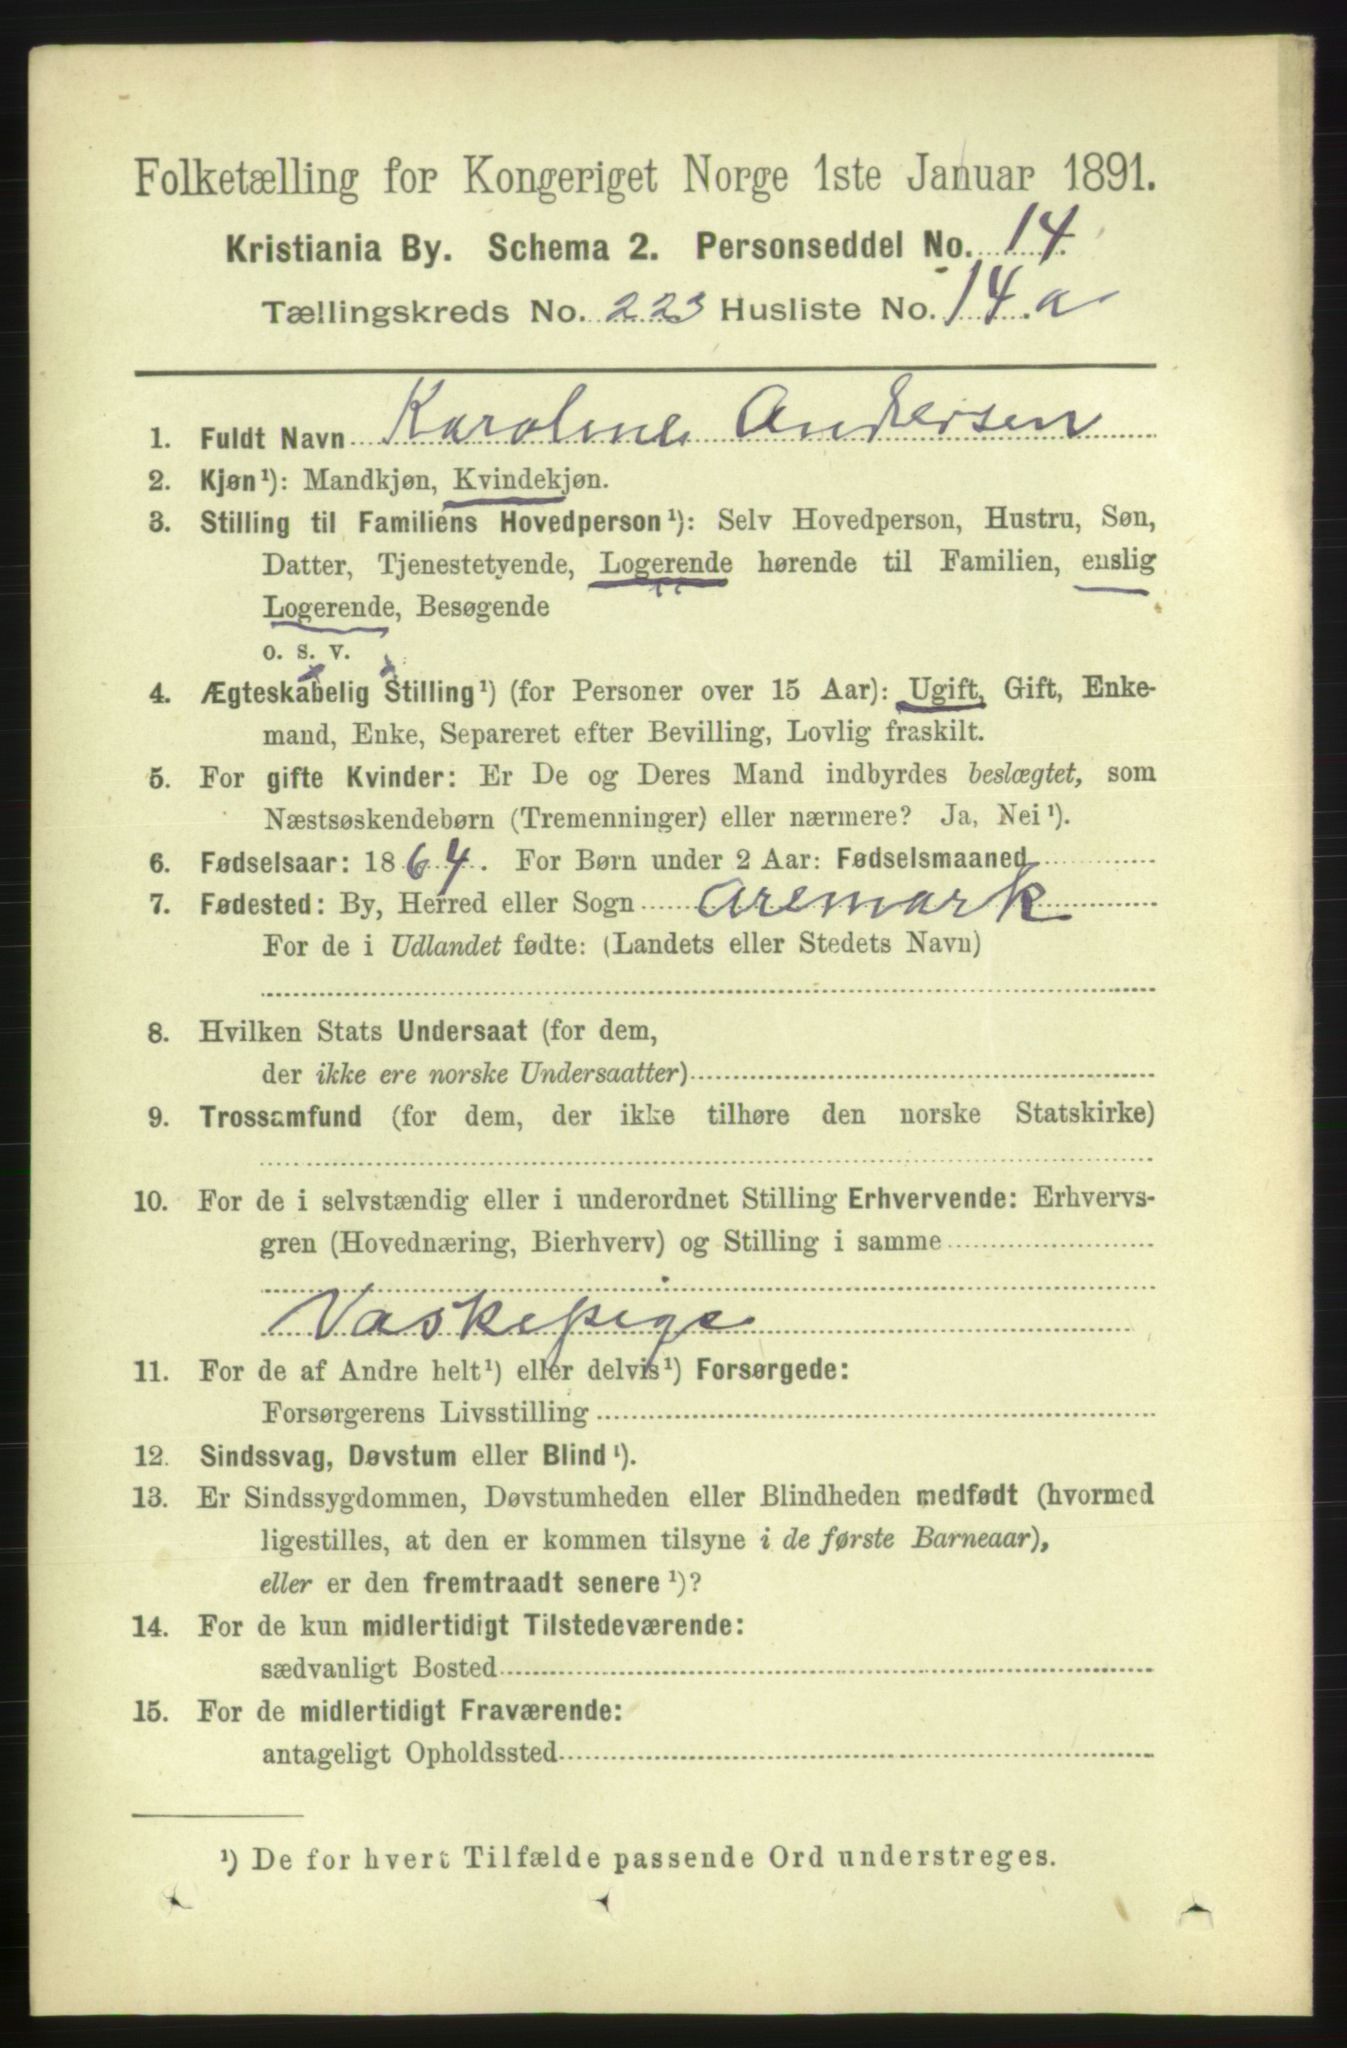 Folketælling for Kongeriget Norge 1ste Januar 1891.
Kristiania By. Schema 2. Personseddel No. 14
Tællingskreds No. 223 Husliste No. 14 a
1. Fuldt Navn Karoline Andersen
2. Kjøn¹): Mandkjøn, Kvindekjøn.
3. Stilling til Familiens Hovedperson¹): Selv Hovedperson, Hustru, Søn,
Datter, Tjenestetyende, Logerende hørende til Familien, enslig
Logerende, Besøgende
o. s. v.
4. Ægteskabelig Stilling¹) (for Personer over 15 Aar): Ugift, Gift, Enke-
mand, Enke, Separeret efter Bevilling, Lovlig fraskilt.
5. For gifte Kvinder: Er De og Deres Mand indbyrdes beslægtet, som
Næstsøskendebørn (Tremenninger) eller nærmere? Ja, Nei¹).
6. Fødselsaar: 1864. For Børn under 2 Aar: Fødselsmaaned
7. Fødested: By, Herred eller Sogn Aremark
For de i Udlandet fødte: (Landets eller Stedets Navn)
8. Hvilken Stats Undersaat (for dem,
der ikke ere norske Undersaatter)
9. Trossamfund (for dem, der ikke tilhøre den norske Statskirke)
10. For de i selvstændig eller i underordnet Stilling Erhvervende: Erhvervs-
gren (Hovednæring, Bierhverv) og Stilling i samme
Vaskepige
11. For de af Andre helt¹) eller delvis¹) Forsørgede:
Forsørgerens Livsstilling
12. Sindssvag, Døvstum eller Blind¹).
13. Er Sindssygdommen, Døvstumheden eller Blindheden medfødt (hvormed
ligestilles, at den er kommen tilsyne i de første Barneaar),
eller er den fremtraadt senere¹)?
14. For de kun midlertidigt Tilstedeværende:
sædvanligt Bosted
15. For de midlertidigt Fraværende:
antageligt Opholdssted
¹) De for hvert Tilfælde passende Ord understreges.